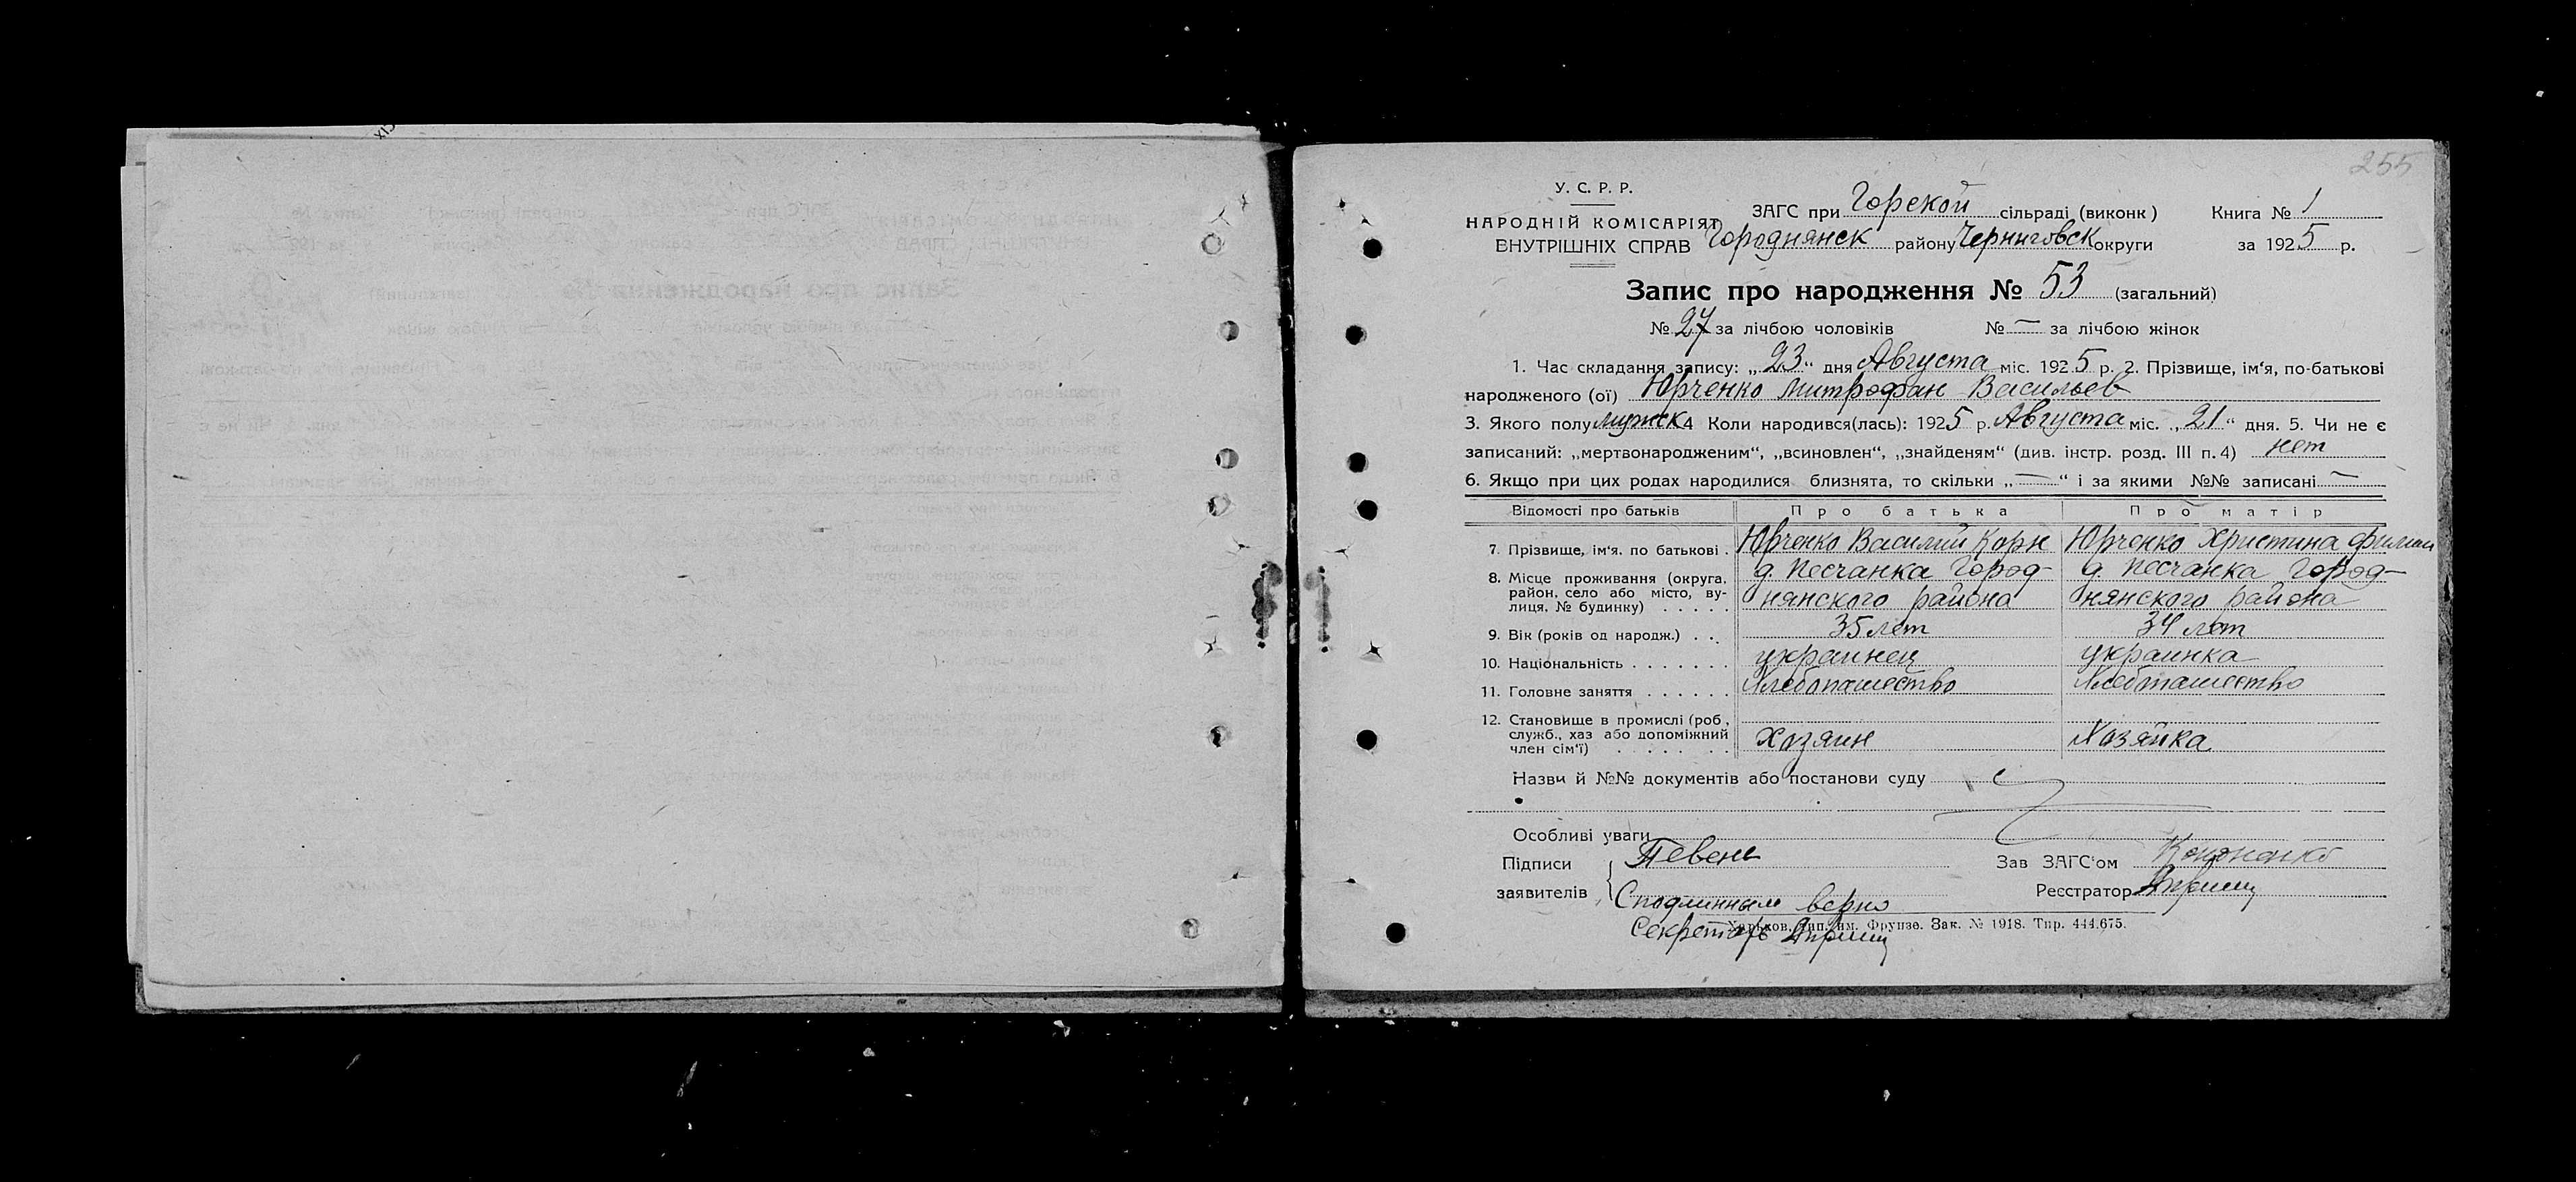 255
У. С. Р. Р.
НАРОДНІЙ КОМІСАРІЯТ
ВНУТРІШНІХ СПРАВ
ЗАГС при Горской сільраді (виконк) Книга № 1
Городнянск району Черниговск округи за 1925 р.
Запис про народження № 53 (загальний)
№ 27 за лічбою чоловіків № — за лічбою жінок
1. Час складання запису: „23“ дня Августа міс. 1925 р. 2. Прізвище, ім‘я, по-батькові
народженого (ої) Юрченко Митрофан Васильев
3. Якого полу мужск 4 Коли народився(лась): 1925 р. Августа міс. „21“ дня. 5. Чи не є
записаний: „мертвонародженим“, „всиновлен“, „знайденям“ (див. інстр. розд. III п. 4) нет
6. Якщо при цих родах народилися близнята, то скільки „—“ і за якими №№ записані —
Відомості про батьків Про батька Про матір
7. Прізвище, ім‘я. по батькові . Юрченко Василий Корн Юрченко Христина Филип
8. Місце проживання (округа, район, село або місто, ву- лиця, № будинку) . . . . . д. Песчанка Город- нянского района д. Песчанка Город- нянского района
9. Вік (років од народж.) . . . 35 лет 34 лет
10. Національність . . . . . . . украинец украинка
11. Головне заняття . . . . . . Хлебопашество Хлебопашество
12. Становище в промислі (роб., служб., хаз або допоміжний член сім‘ї) . . . . . . . Хозяин Хозяйка
Назви й №№ документів або постанови суду
Особливі уваги
Підписи Певень Зав ЗАГС‘ом Кононенко
заявителів Реєстратор
С подлинным верно
Секретарь
Харьков, Тип. им. Фрунзе. Зак. № 1918. Тир. 444.675.